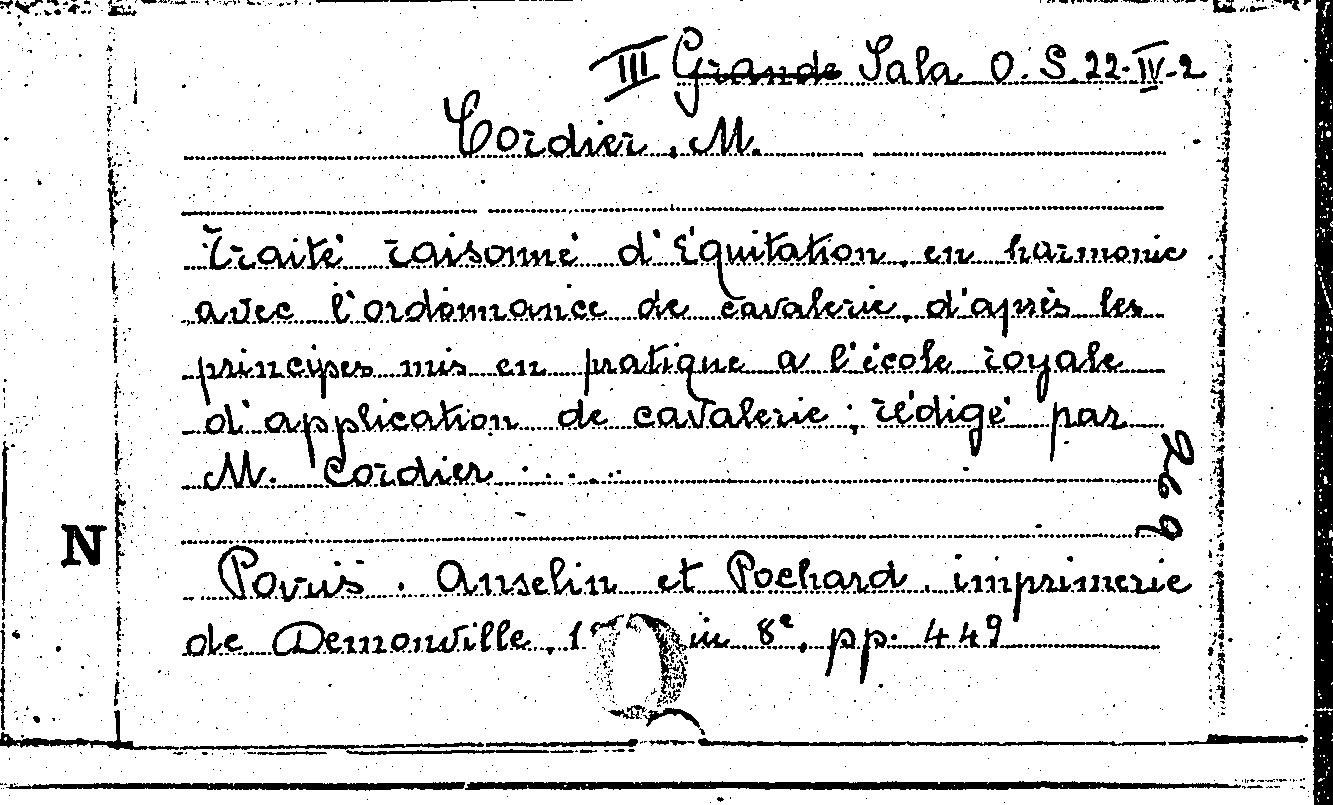 III Grande Sala O.S.22-IV-2
Cordier, M.
Traité raisonné d'Equitation, en harmonie
avec l'ordonnance de cavalerie, d'après les
principes mis en pratique a l'école royale
d'application de cavalerie; rédigé par
M. Cordier . . . .
N
Paris. Anselin et Pochard, imprimerie
de Demonville, in 8°, pp. 449